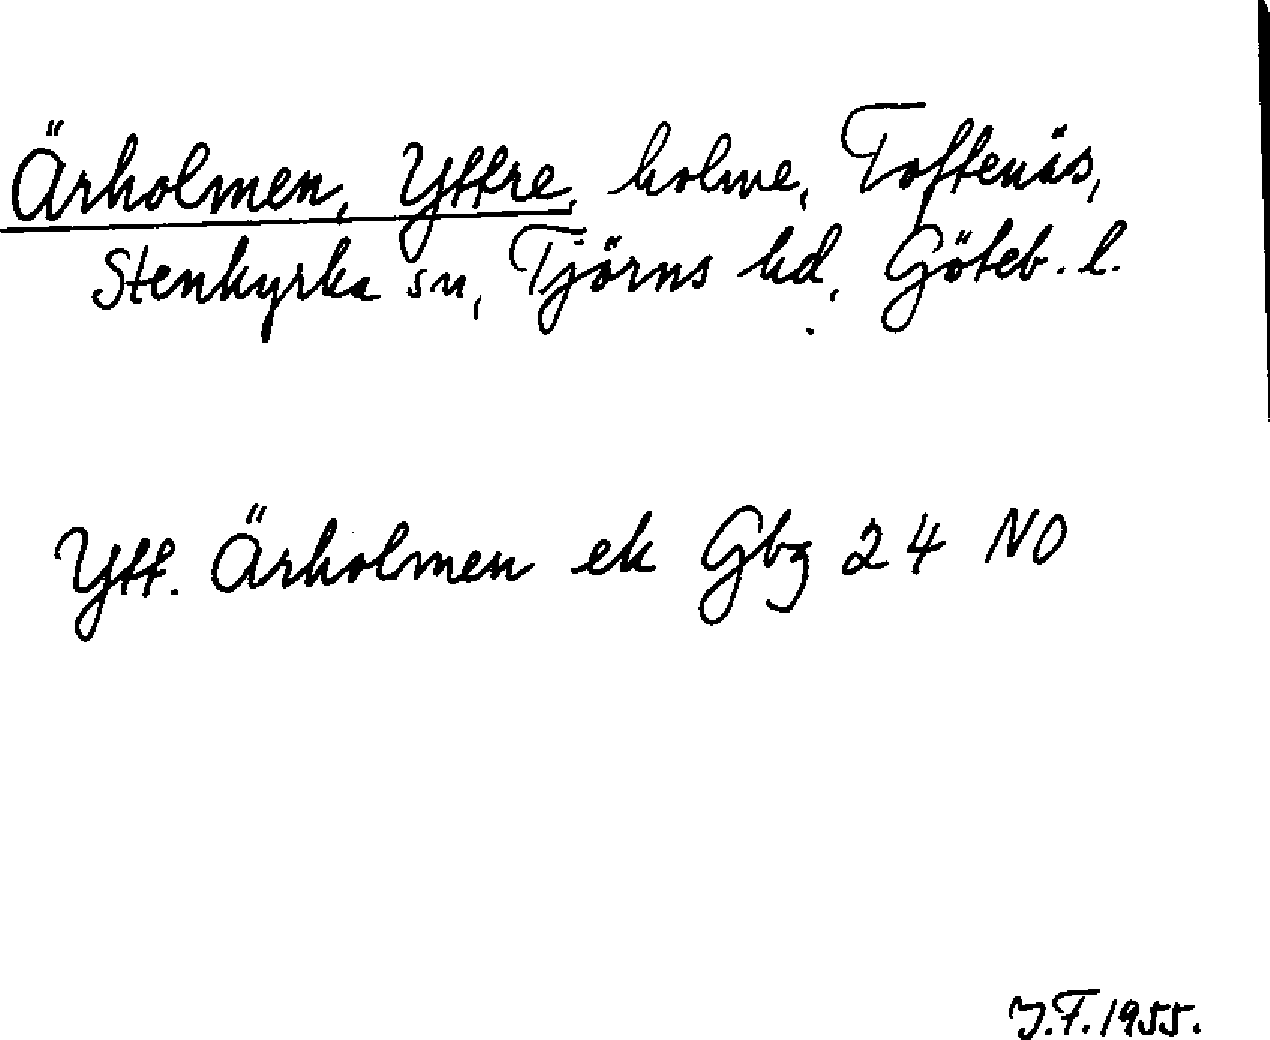 Ärholmen, Yttre, holme, Toftenäs,
Stenkyrka sn, Tjörns hd, Göteb. l.
Ytt. Ärholmen ek Gbg 24 NO
J.F. 1955.